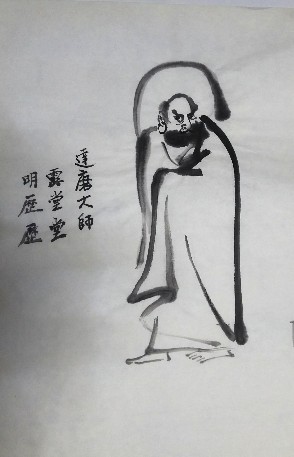 達磨大師
露堂堂
明歷歷